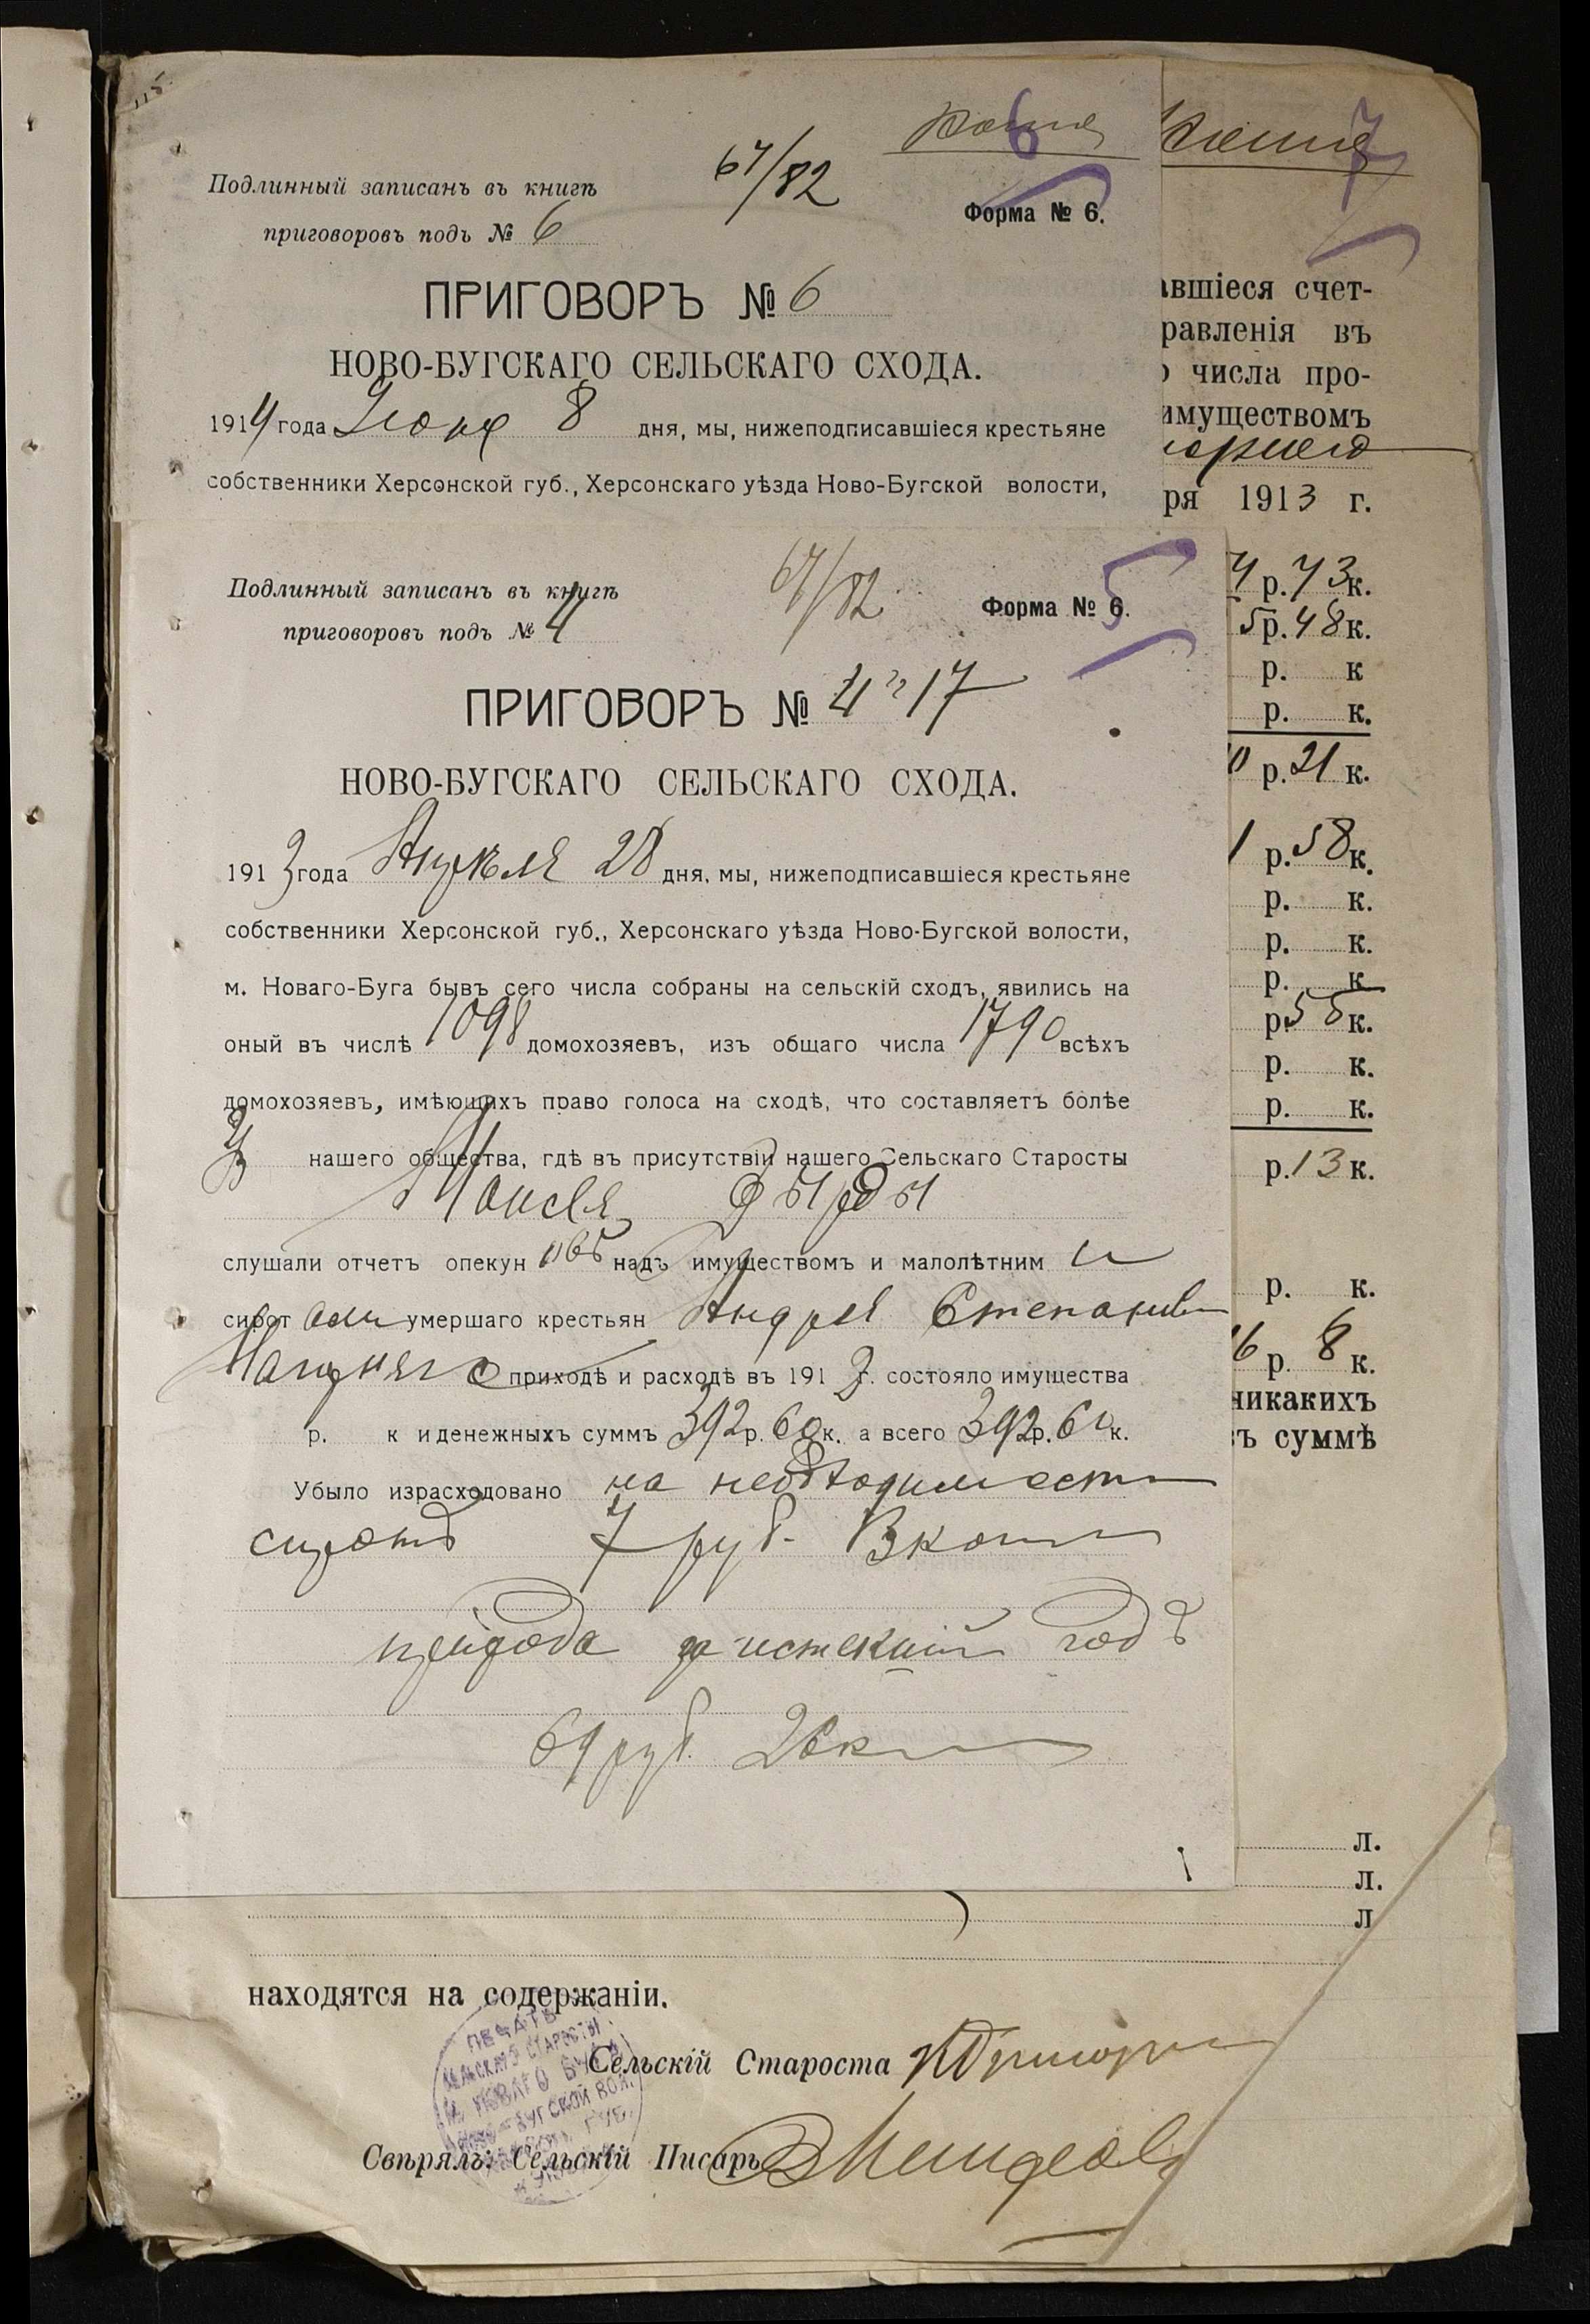 Подлинный записанъ въ книгѣ
приговоровъ подъ № 6
67/82
Копія
6
Форма № 6.
ПРИГОВОРЪ № 6
НОВО-БУГСКАГО СЕЛЬСКАГО СХОДА.
1914 года Іюня 8 дня, мы, нижеподписавшіеся крестьяне
собственники Херсонской губ., Херсонскаго уѣзда Ново-Бугской волости,
Подлинный записанъ въ книгѣ
приговоровъ подъ № 4
67/82
5
Форма № 6.
ПРИГОВОРЪ № 4 17
НОВО-БУГСКАГО СЕЛЬСКАГО СХОДА.
1913 года Апреля 28 дня, мы, нижеподписавшіеся крестьяне
собственники Херсонской губ., Херсонскаго уѣзда Ново-Бугской волости,
м. Новаго-Буга бывъ сего числа собраны на сельскій сходъ, явились на
оный въ числѣ 1098 домохозяевъ, изъ общаго числа 1790 всѣхъ
домохозяевъ, имѣющихъ право голоса на сходѣ, что составляетъ болѣе
нашего общества, гдѣ въ присутствіи нашего Сельскаго Старосты
Моисея Дырды
слушали отчетъ опекуновъ надъ имуществомъ и малолѣтними
сиротами умершаго крестьян Андрея Степанова
приходѣ и расходѣ въ 1912 г. состояло имущества
р. к и денежныхъ суммъ 392 р. 60 к. а всего 392 р. 60 к.
Убыло израсходовано на необходимости
сиротъ 7 руб. 3 коп
прихода за истекшій годъ
69 руб.
Копія
7
авшіеся счет-
равленія въ
о числа про-
имуществомъ
ря 1913 г.
4 р. 73 к.
5 р. 48 к.
р. к
р. к.
0 р. 21 к.
1 р. 58 к.
р. к.
р. к.
р. к
р. 55 к.
р. к.
р. к.
р. 13 к.
р. к.
6 р. 8 к.
никакихъ
въ суммѣ
л.
л.
л
находятся на содержаніи.
Сельскій Староста
Свѣрялъ: Сельскій Писарь
ПЕЧАТЬ
СЕЛЬСКАГО СТАРОСТЫ
М. НОВАГО БУГА
НОВО-БУГСКОЙ ВОЛ.